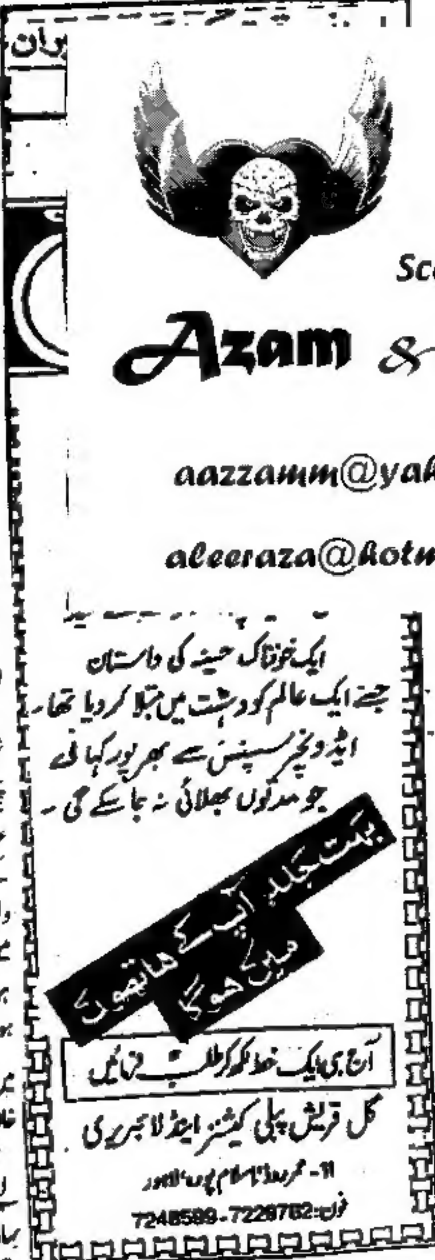 یران
Sc
Azam &
aazzamm@yah
aleeraza@hotm
ایک خوفناک حسینہ کی داستان
جسنے ایک عالم کو دہشت میں مبتلا کر دیا تھا۔
ایڈونچر سسپنس سے بھرپور کہانی
جو مدتوں بھلائی نہ جا سکے گی۔
بہت جلد آپ کے ہاتھوں
میں ہوگا
آج ہی ایک خط لکھ کر طلب فرمائیں
گل قریش پبلی کیشنز اینڈ لائبریری
11- عمر روڈ اسلام پورہ لاہور
فون: 7248599-7229762